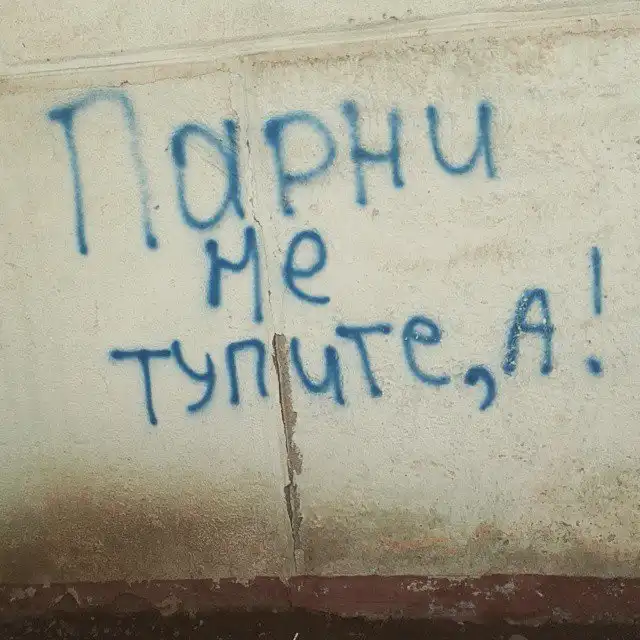 Парни
не
тупите, А!